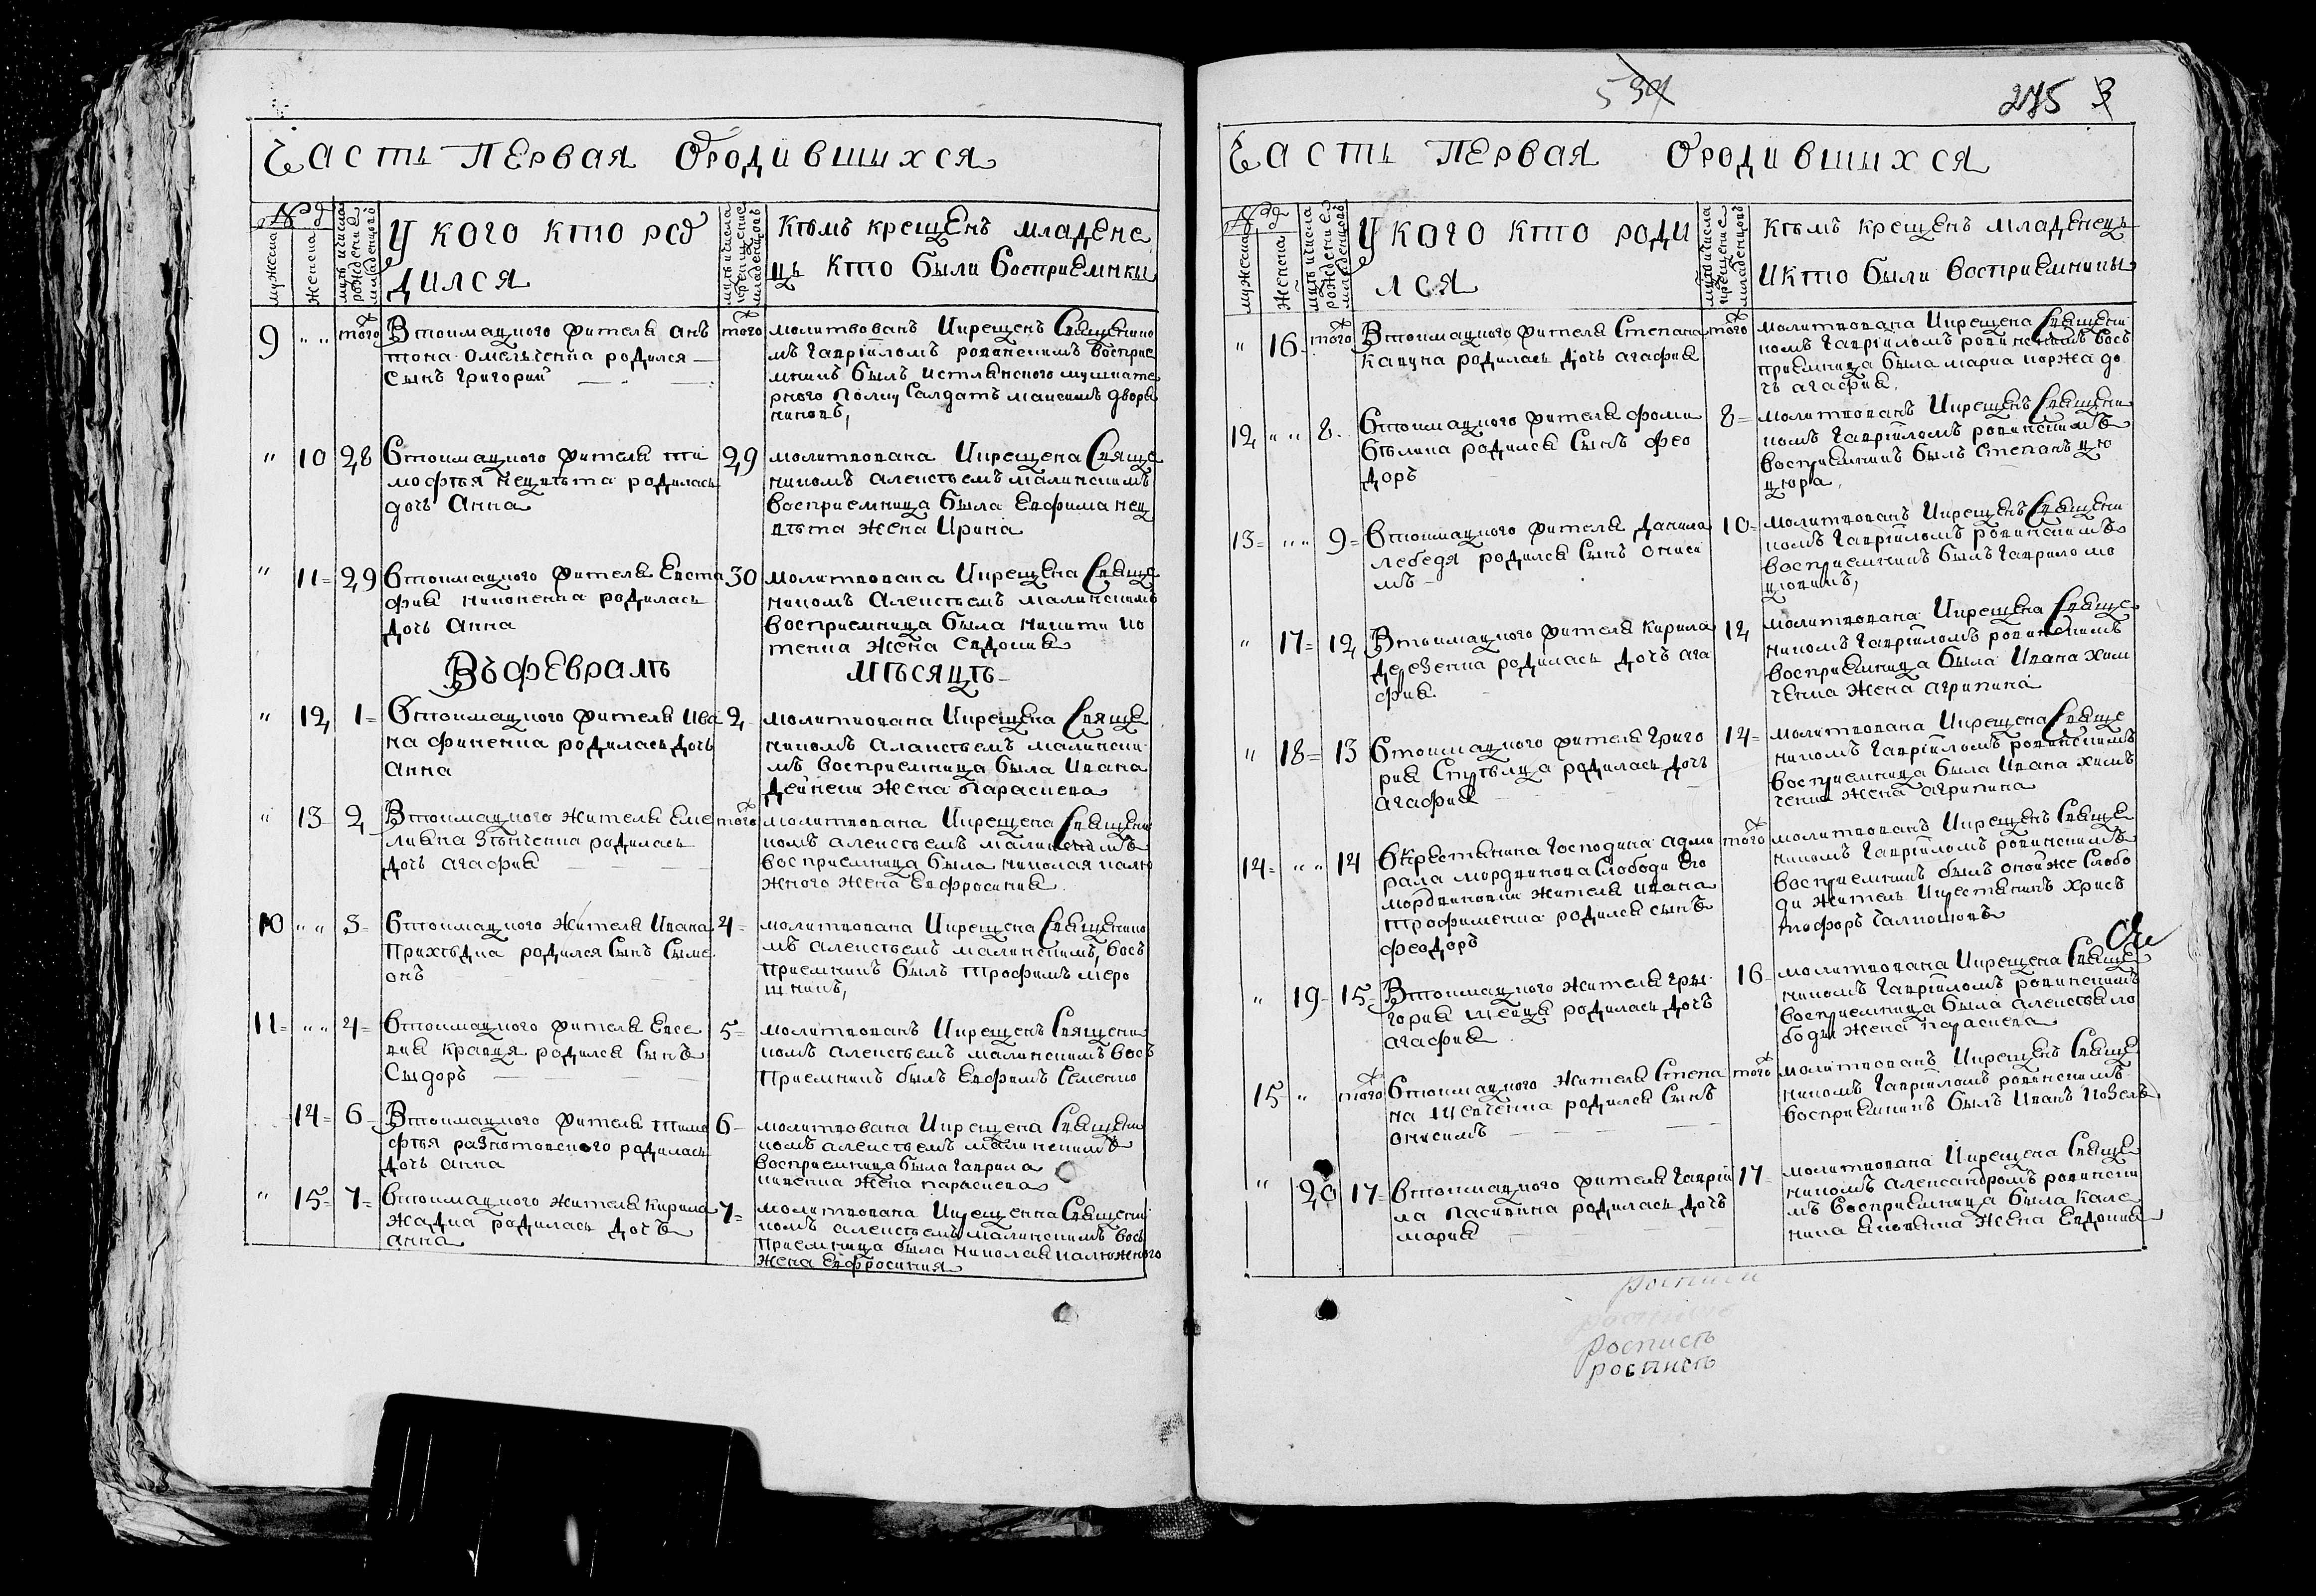 Часть первая ородившихся
№д
мужеска
женска
У кого кто ро
дился
Кѣмъ крещенъ младене
цъ кто были восприемники
9 " " того Втоимацкого жителя анъ
тона омельченка родился
Сынъ григорий
того молитвованъ икрещенъ Священико
мъ гавріиломъ ровинскимъ восприе
мникъ былъ
рного полку Салдатъ максимъ дворя
ниновъ,
" 10 28 Втоимацкого жителя ти
мофѣя нецвѣта родилась
дочь Анна
29 молитвована икрещена Свяще
никомъ алексѣемъ малинскимъ
восприемница была Ефима нец
вѣта жена Ирина
" 11 29 втоимацкого жителя Евста
фия никоненка родилась
дочь Анна
30 молитвована икрещена Свяще
никомъ Алексѣемъ малинскимъ
восприемница была никити ко
тенка жена Евдокия
Въ февралѣ мѣсяцѣ
" 12 1 Втоимацкого жителя Ива
на финенка родилась дочь
Анна
2 молитвована икрещена Свяще
никомъ алаксѣемъ малински
мъ восприемница была Ивана
Дейнеки жена Параскева
" 13 2 Втоимацкого жителя Еме
лияна Зѣнченка родилась
дочь агафия
того молитвована икрещена Священи
комъ алексѣемъ малинскимъ
восприемница была николая калю
жного жена Ефросиния
10 " " 3 втоимацкого жителя Ивана
Прихѣдка родился Сынъ Симе
онъ
4 молитвована икрещена Священико
мъ алексѣемъ малинскимъ, вось
приемникъ былъ трофимъ миро
шникъ,
11 " " 4 Втоимацкого жителя Евсе
вия кравця родился Сынъ
Сыдоръ
5 молитвованъ икрещенъ Священи
комъ алексѣемъ малинскимъ вось
приемникъ былъ Ефимъ Семенко
14 6 Втоимацкого жителя тимо
фѣя разнотовского родилась
дочь анна
6 молитвована икрещена Священи
комъ алексѣемъ малинскимъ
восприемница была гаврила
жена параскева
" 15 7 втоимацкого жителя кирила
жадка родилась дочь
анна
7 молитвована икрещенна Священи
комъ алексѣемъ малинскимъ вось
приемница была николая калюжного
жена Ефросиния
534 275 3
Часть первая ородившихся
№д
мужеска
женска
У кого кто роди
лся
Кѣмъ крещенъ младенецъ
икто были восприемники
" 16 того Втоимацкого жителя Степана
кавуна родилась дочь агафия
того молитвована икрещена Священи
комъ гавріиломъ ровинскимъ вось
приемница была мариа коржа до
чь агафия.
12 " " 8 Втоимацкого жителя фоми
бѣлика родился Сынъ фео
доръ
8 молитвованъ икрещенъ Священи
комъ гавріиломъ ровинскимъ
восприемникъ былъ Степанъ цю
цюра,
13 " " 9 Втоимацкого жителя данила
лебедя родился Сынъ ониси
мъ
10 молитвованъ икрещенъ Священи
комъ гавріиломъ ровинскимъ
восприемникъ былъ гаврило мо
" 17 12 Втоимацкого жителя кирила
дерезенка родилась дочь ага
фия
12 молитвована икрещена Свяще
никомъ гавріиломъ ровинскимъ
восприемница была Ивана хим
ченка жена агрипина
" 18 13 Втоимацкого жителя григо
рия родилась дочь
агафия
14 молитвована икрещена Свяще
никомъ гавріиломъ ровинскимъ
восприемница была Ивана химъ
ченка жена агрипина
14 " " 14 вкрестянина господина адми
рала мордвинова Слободи его
мордвиновки жителя Ивана
трофименка родился сынъ
феодоръ
того молитвованъ икрещенъ Свяще
никомъ гавріиломъ ровинскимъ
восприемникъ былъ онойже Слобо
ди житель икрестянинъ христ
тофоръ
" 19 15 Втоимацкого жителя гри
гория шевця родилась дочь
агафия
16 молитвована икрещена Свяще
никомъ гавріиломъ ровинскимъ
восприемница была алексѣя ло
боды жена параскева
15 " того Втоимацкого жителя Степа
на шевченка родился Сынъ
онисимъ
того молитвованъ икрещенъ Свяще
никомъ гавріиломъ ровинскимъ
восприемникъ былъ Иванъ козелъ
" 20 17 втоимацкого жителя гаврій
ла пасичника родилась дочь
мария
17 молитвована икрещена Свяще
никомъ александромъ ровински
мъ восприемница была кале
ника жена Евдокия
росписи
роспись
роспись